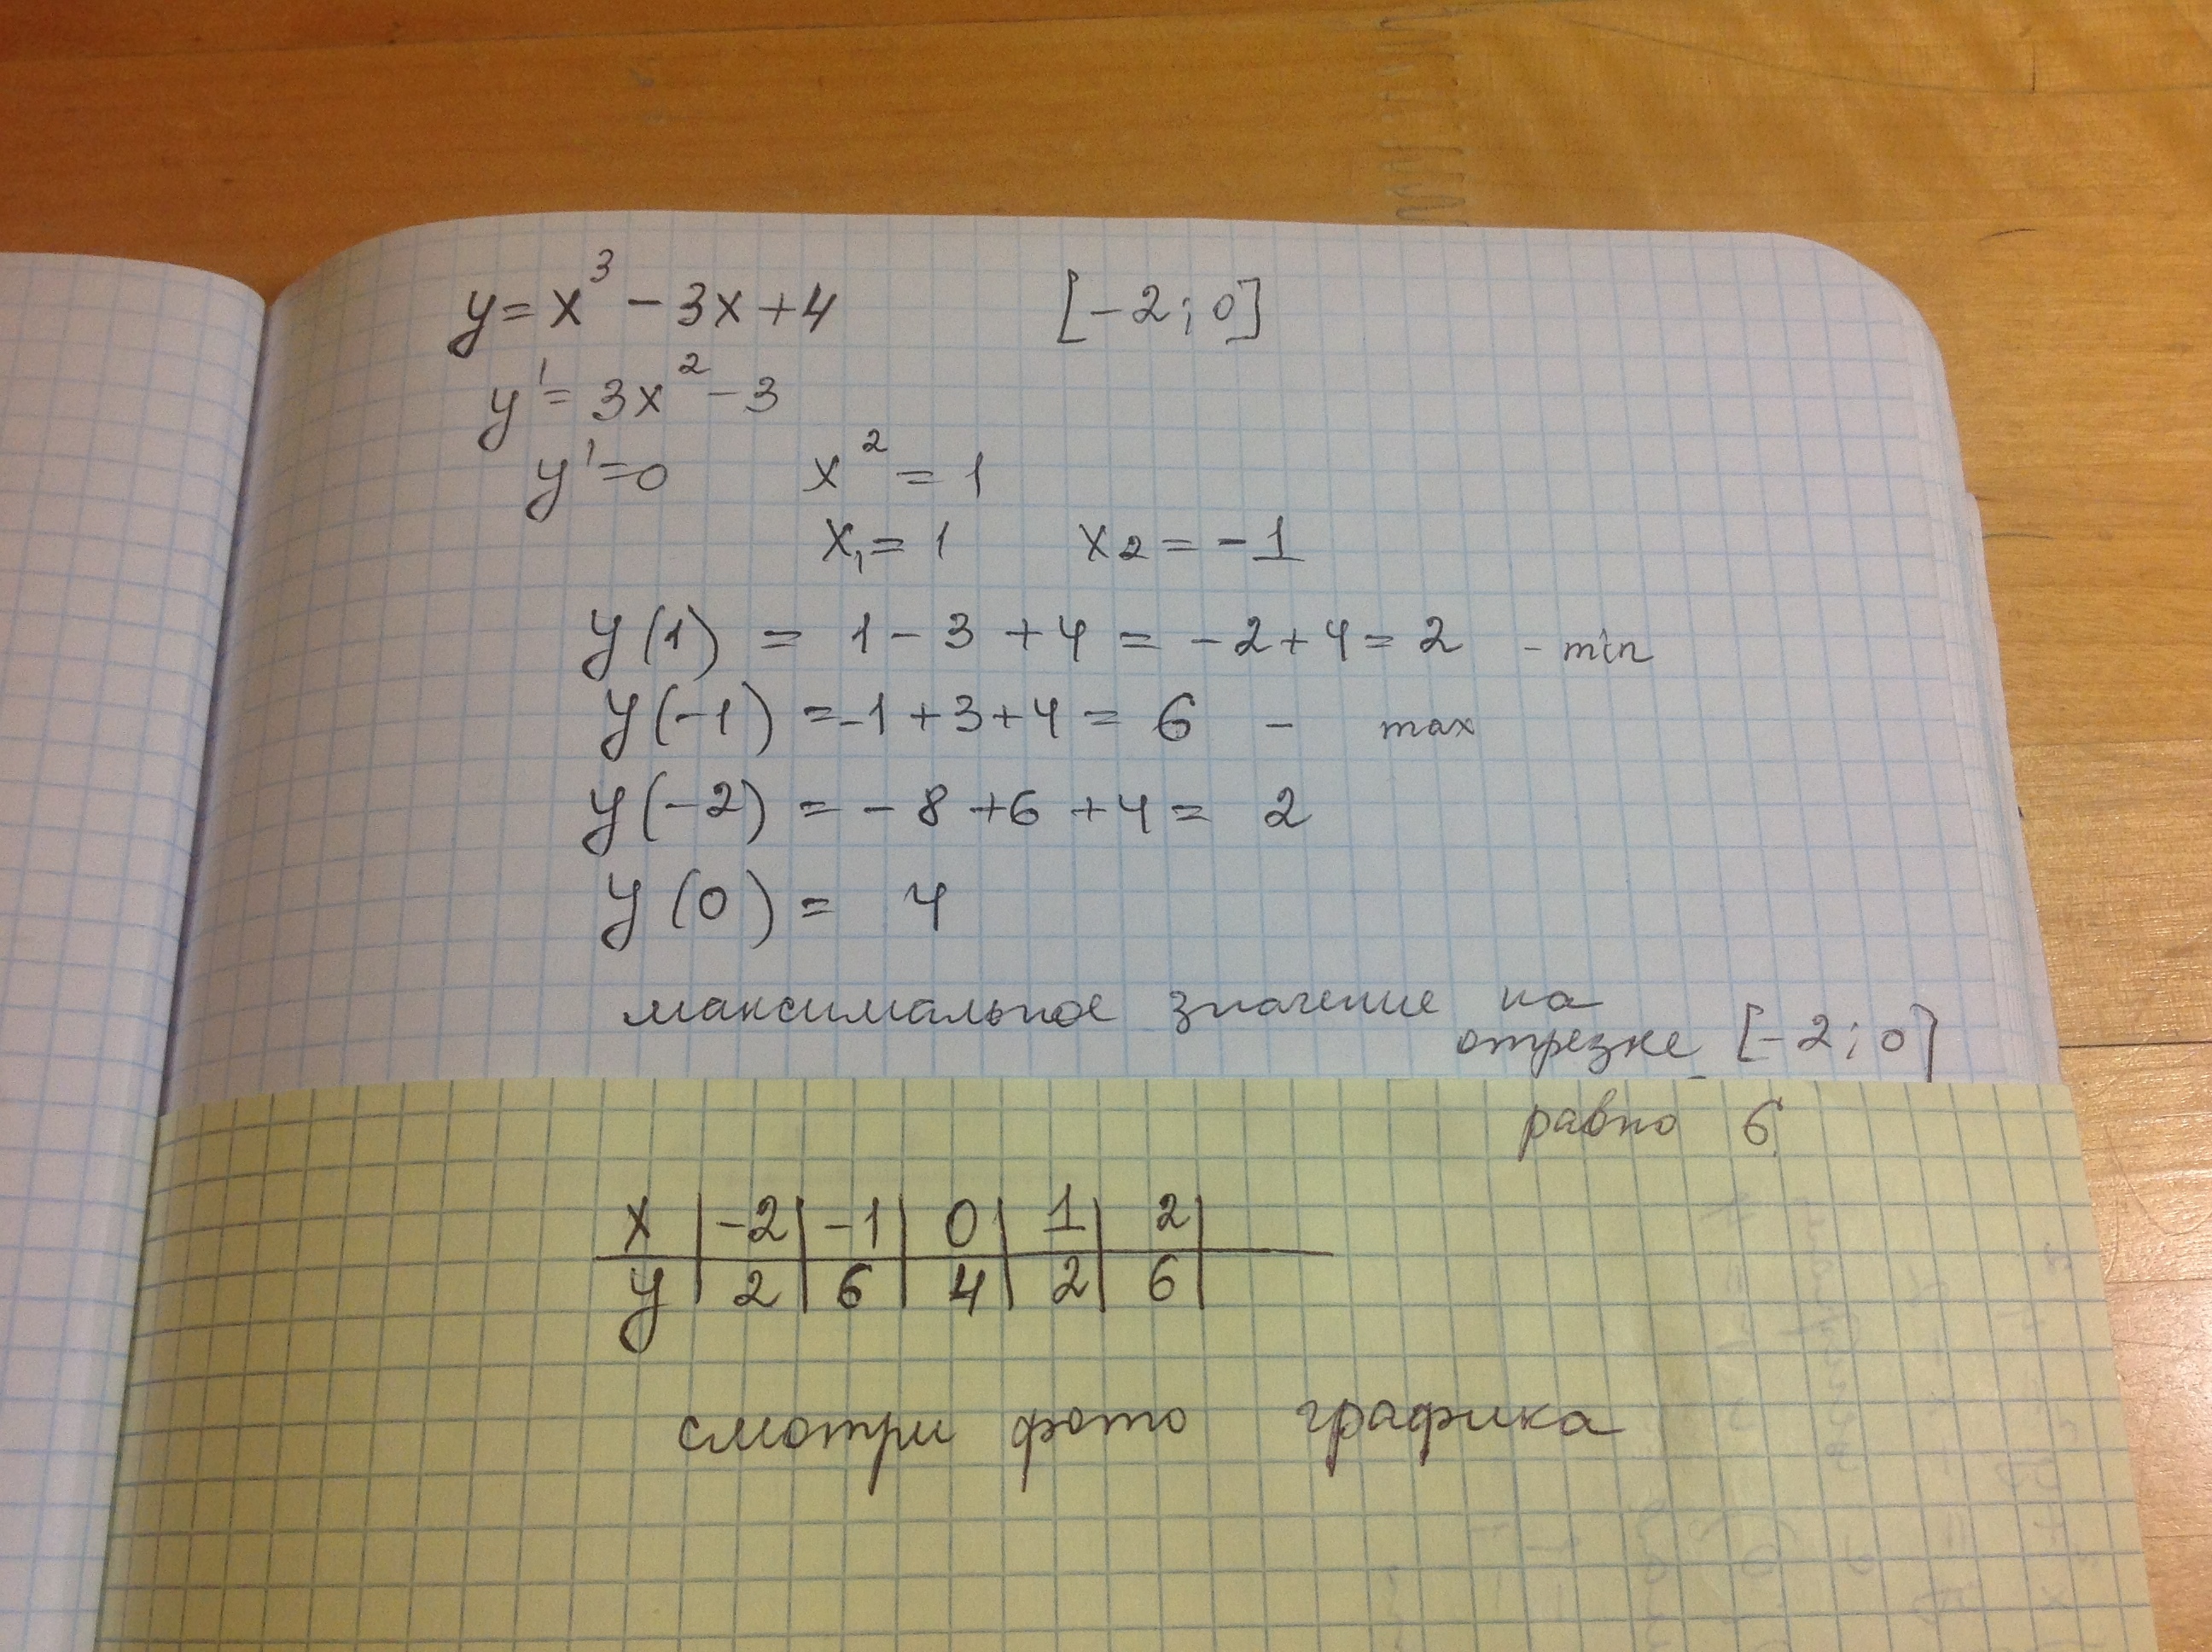 y = x³ - 3x + 4 [-2; 0]
y' = 3x² - 3
y' = 0 x² = 1
x₁ = 1 x₂ = -1
y(1) = 1 - 3 + 4 = -2 + 4 = 2 - min
y(-1) = -1 + 3 + 4 = 6 - max
y(-2) = -8 + 6 + 4 = 2
y(0) = 4
максимальное значение на
отрезке [-2; 0]
равно 6
x | -2 | -1 | 0 | 1 | 2 |
y | 2 | 6 | 4 | 2 | 6 |
смотри фото графика